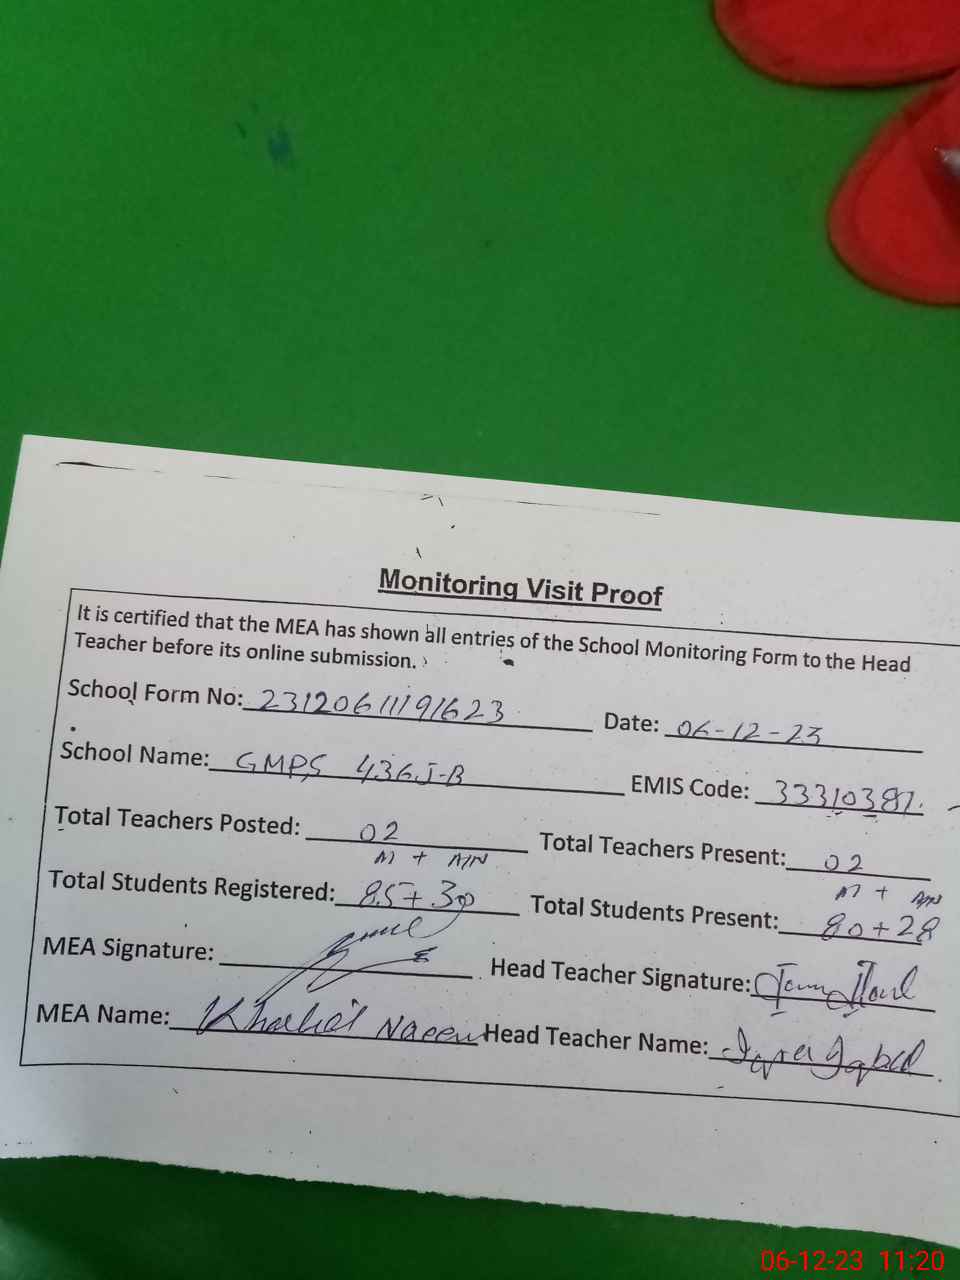 Monitoring Visit Proof
It is certified that the MEA has shown all entries of the School Monitoring Form to the Head
Teacher before its online submission.
School Form No: 23120611191623 Date: 06-12-23
School Name: GMPS 436 J-B EMIS Code: 33310387
Total Teachers Posted: 02 Total Teachers Present: 02
M + A/N M + A/N
Total Students Registered: 85+30 Total Students Present: 80+28
MEA Signature: Head Teacher Signature:
MEA Name: Khalid Naeem Head Teacher Name:
06-12-23 11:20